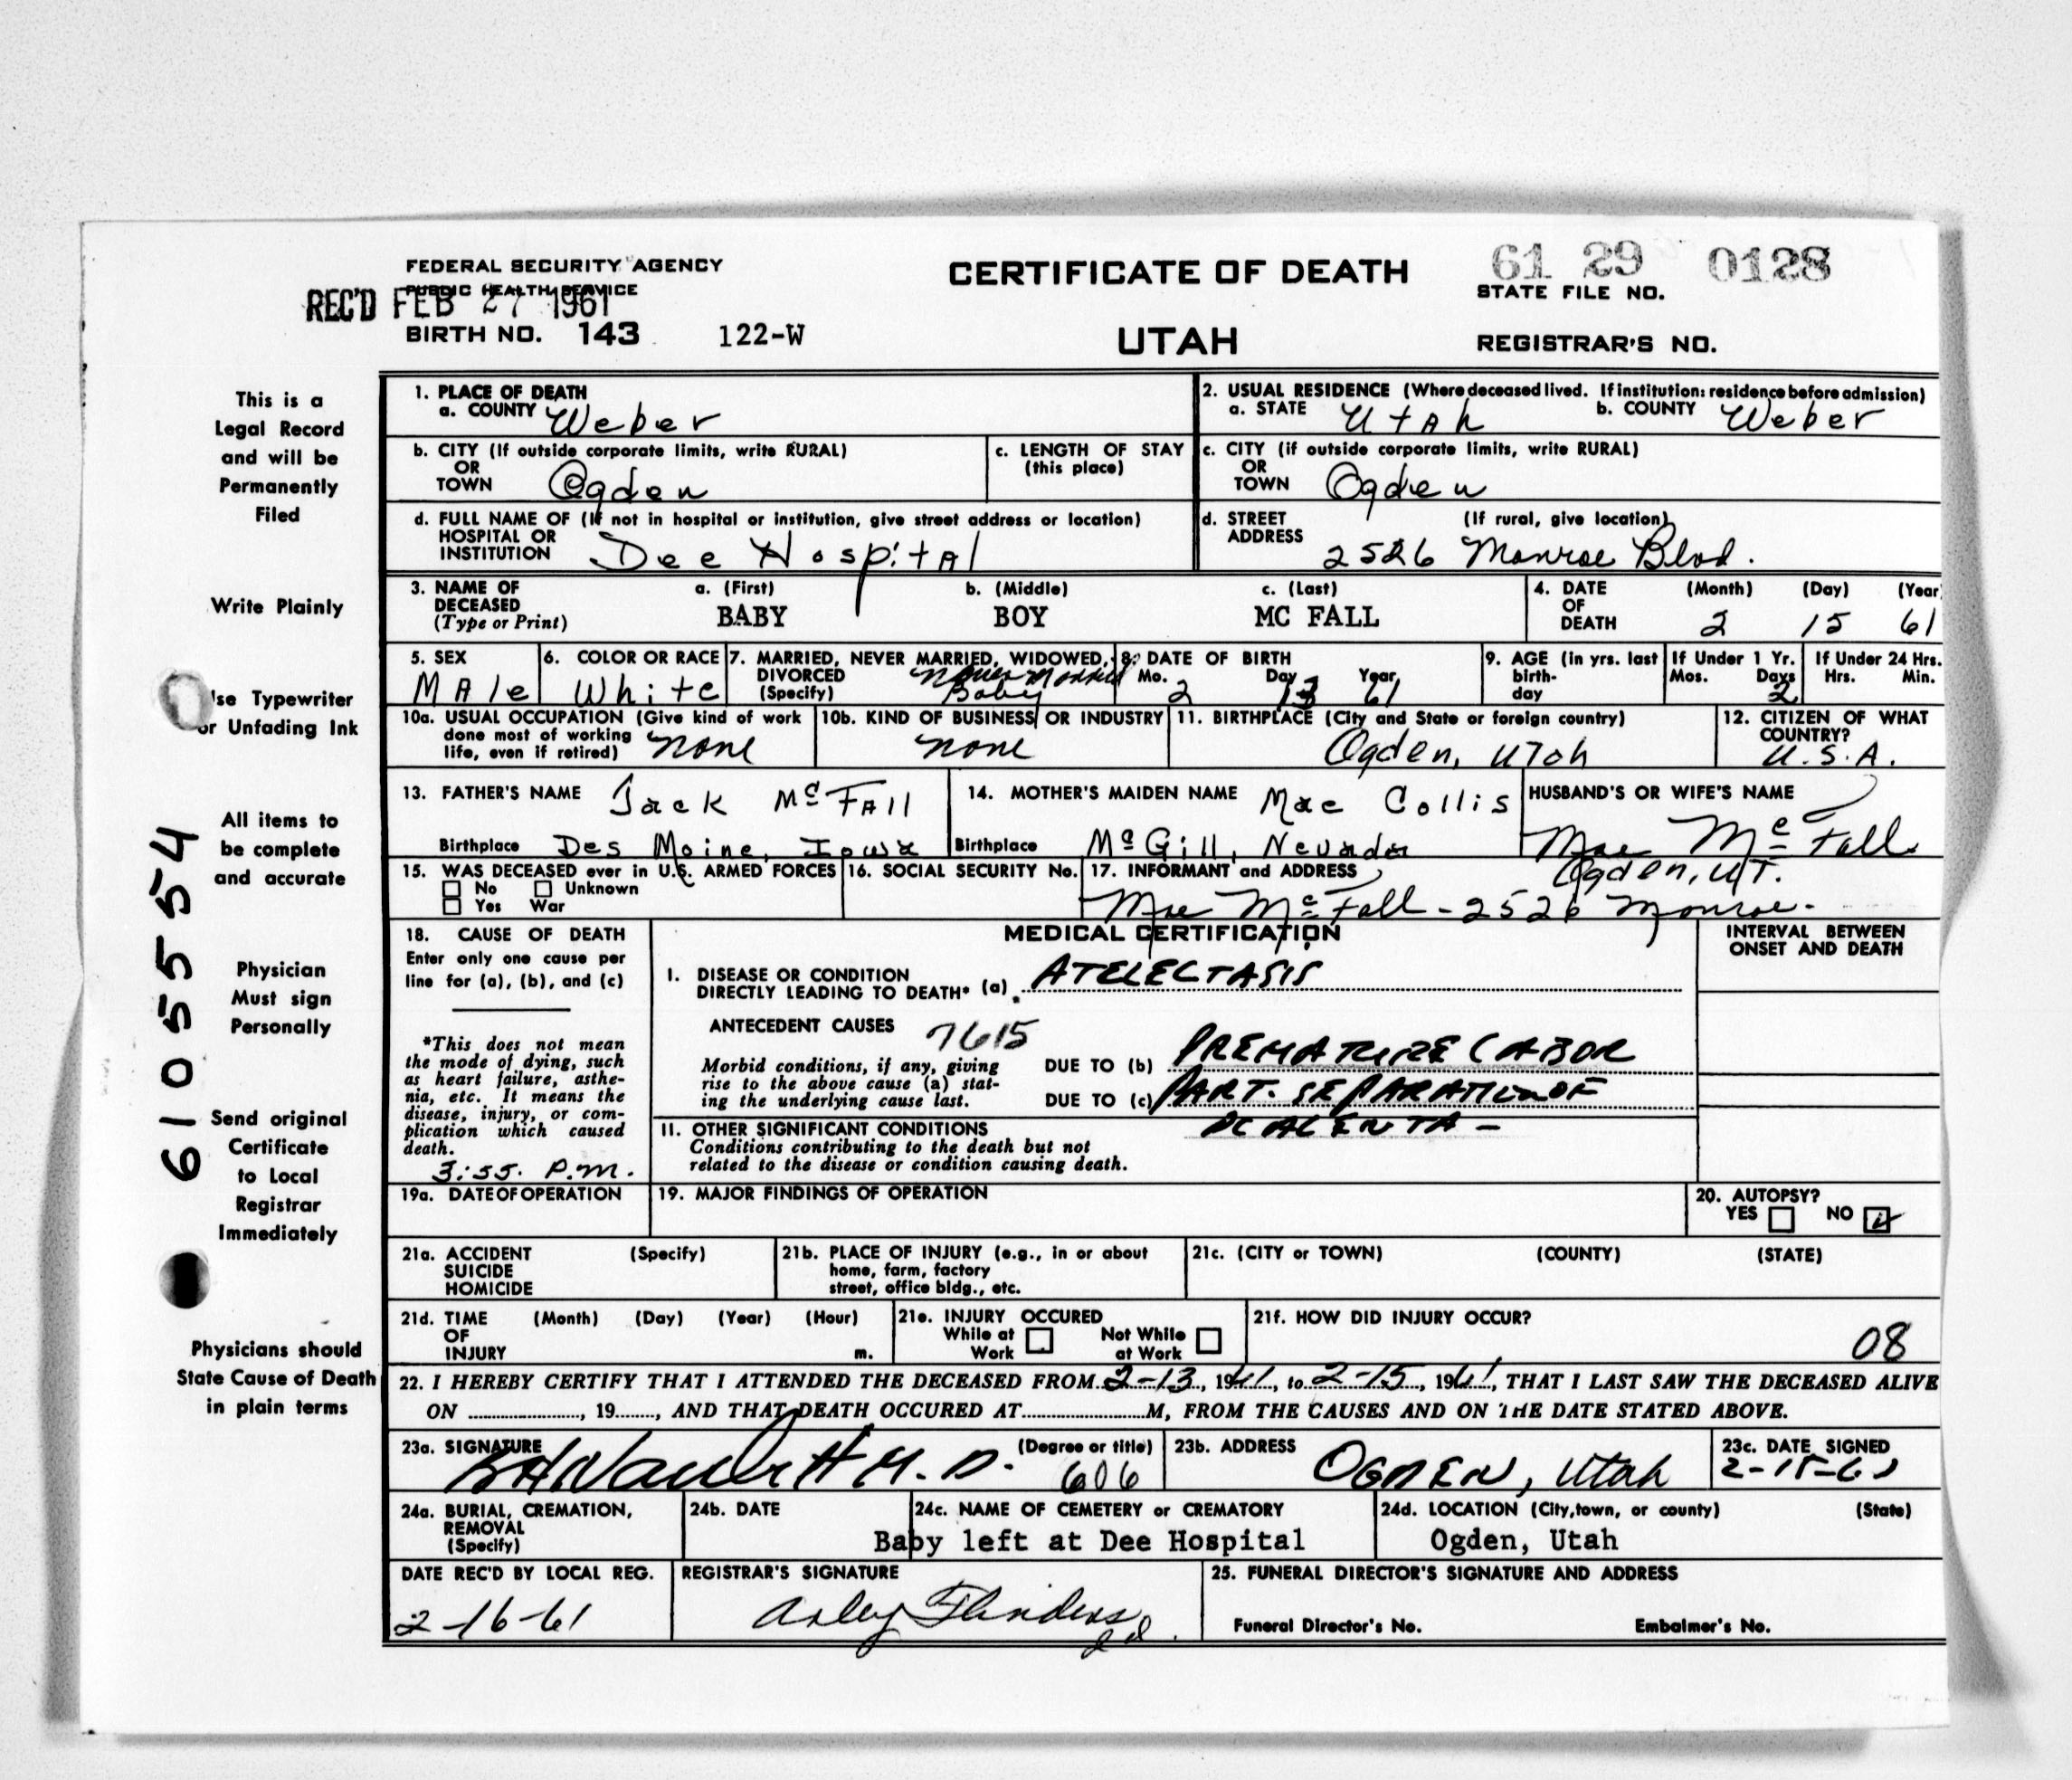 FEDERAL SECURITY AGENCY
PUBLIC HEALTH SERVICE
REC'D FEB 27 1961
BIRTH NO. 143 122-W
CERTIFICATE OF DEATH
UTAH
61 29 0128
STATE FILE NO.
REGISTRAR'S NO.
This is a
Legal Record
and will be
Permanently
Filed
Write Plainly
se Typewriter
or Unfading Ink
All items to
be complete
and accurate
Physician
Must sign
Personally
Send original
Certificate
to Local
Registrar
Immediately
Physicians should
State Cause of Death
in plain terms
6105554
1. PLACE OF DEATH
a. COUNTY Weber
2. USUAL RESIDENCE (Where deceased lived. If institution: residence before admission)
a. STATE Utah b. COUNTY Weber
b. CITY (If outside corporate limits, write RURAL)
OR
TOWN Ogden
c. LENGTH OF STAY
(this place)
c. CITY (if outside corporate limits, write RURAL)
OR
TOWN Ogden
d. FULL NAME OF (If not in hospital or institution, give street address or location)
HOSPITAL OR
INSTITUTION Dee Hospital
d. STREET (If rural, give location)
ADDRESS 2526 Monroe Blvd.
3. NAME OF a. (First) b. (Middle) c. (Last)
DECEASED BABY BOY MC FALL
(Type or Print)
4. DATE (Month) (Day) (Year
OF
DEATH 2 15 61
5. SEX
Male
6. COLOR OR RACE
White
7. MARRIED, NEVER MARRIED, WIDOWED,
DIVORCED Never Married
(Specify) Baby
8. DATE OF BIRTH
Mo. Day Year
2 13 61
9. AGE (in yrs. last
birth-
day
If Under 1 Yr.
Mos. Days
2
If Under 24 Hrs.
Hrs. Min.
10a. USUAL OCCUPATION (Give kind of work
done most of working
life, even if retired) none
10b. KIND OF BUSINESS OR INDUSTRY
none
11. BIRTHPLACE (City and State or foreign country)
Ogden, Utah
12. CITIZEN OF WHAT
COUNTRY?
U.S.A.
13. FATHER'S NAME Jack McFall
Birthplace Des Moine, Iowa
14. MOTHER'S MAIDEN NAME Mae Collis
Birthplace McGill, Nevada
HUSBAND'S OR WIFE'S NAME
Mae McFall
15. WAS DECEASED ever in U.S. ARMED FORCES
No Unknown
Yes War
16. SOCIAL SECURITY No.
17. INFORMANT and ADDRESS Ogden, UT.
Mae McFall - 2526 Monroe -
18. CAUSE OF DEATH
Enter only one cause per
line for (a), (b), and (c)
*This does not mean
the mode of dying, such
as heart failure, asthe-
nia, etc. It means the
disease, injury, or com-
plication which caused
death.
3:55 P.M.
MEDICAL CERTIFICATION
I. DISEASE OR CONDITION
DIRECTLY LEADING TO DEATH* (a) ATELECTASIS
ANTECEDENT CAUSES 7615
Morbid conditions, if any, giving
rise to the above cause (a) stat-
ing the underlying cause last.
DUE TO (b) PREMATURE LABOR
DUE TO (c) PART. SEPARATION OF
PLACENTA -
II. OTHER SIGNIFICANT CONDITIONS
Conditions contributing to the death but not
related to the disease or condition causing death.
INTERVAL BETWEEN
ONSET AND DEATH
19a. DATE OF OPERATION
19. MAJOR FINDINGS OF OPERATION
20. AUTOPSY?
YES NO
21a. ACCIDENT (Specify)
SUICIDE
HOMICIDE
21b. PLACE OF INJURY (e.g., in or about
home, farm, factory
street, office bldg., etc.
21c. (CITY or TOWN) (COUNTY) (STATE)
21d. TIME (Month) (Day) (Year) (Hour)
OF
INJURY m.
21e. INJURY OCCURED
While at Not While
Work at Work
21f. HOW DID INJURY OCCUR?
08
22. I HEREBY CERTIFY THAT I ATTENDED THE DECEASED FROM 2-13, 1961, to 2-15, 1961, THAT I LAST SAW THE DECEASED ALIVE
ON ........, 19...., AND THAT DEATH OCCURED AT........M, FROM THE CAUSES AND ON THE DATE STATED ABOVE.
23a. SIGNATURE (Degree or title)
M.D. 606
23b. ADDRESS
OGDEN, Utah
23c. DATE SIGNED
2-15-61
24a. BURIAL, CREMATION,
REMOVAL
(Specify)
24b. DATE
24c. NAME OF CEMETERY or CREMATORY
Baby left at Dee Hospital
24d. LOCATION (City, town, or county) (State)
Ogden, Utah
DATE REC'D BY LOCAL REG.
2-16-61
REGISTRAR'S SIGNATURE
Flinders
25. FUNERAL DIRECTOR'S SIGNATURE AND ADDRESS
Funeral Director's No. Embalmer's No.